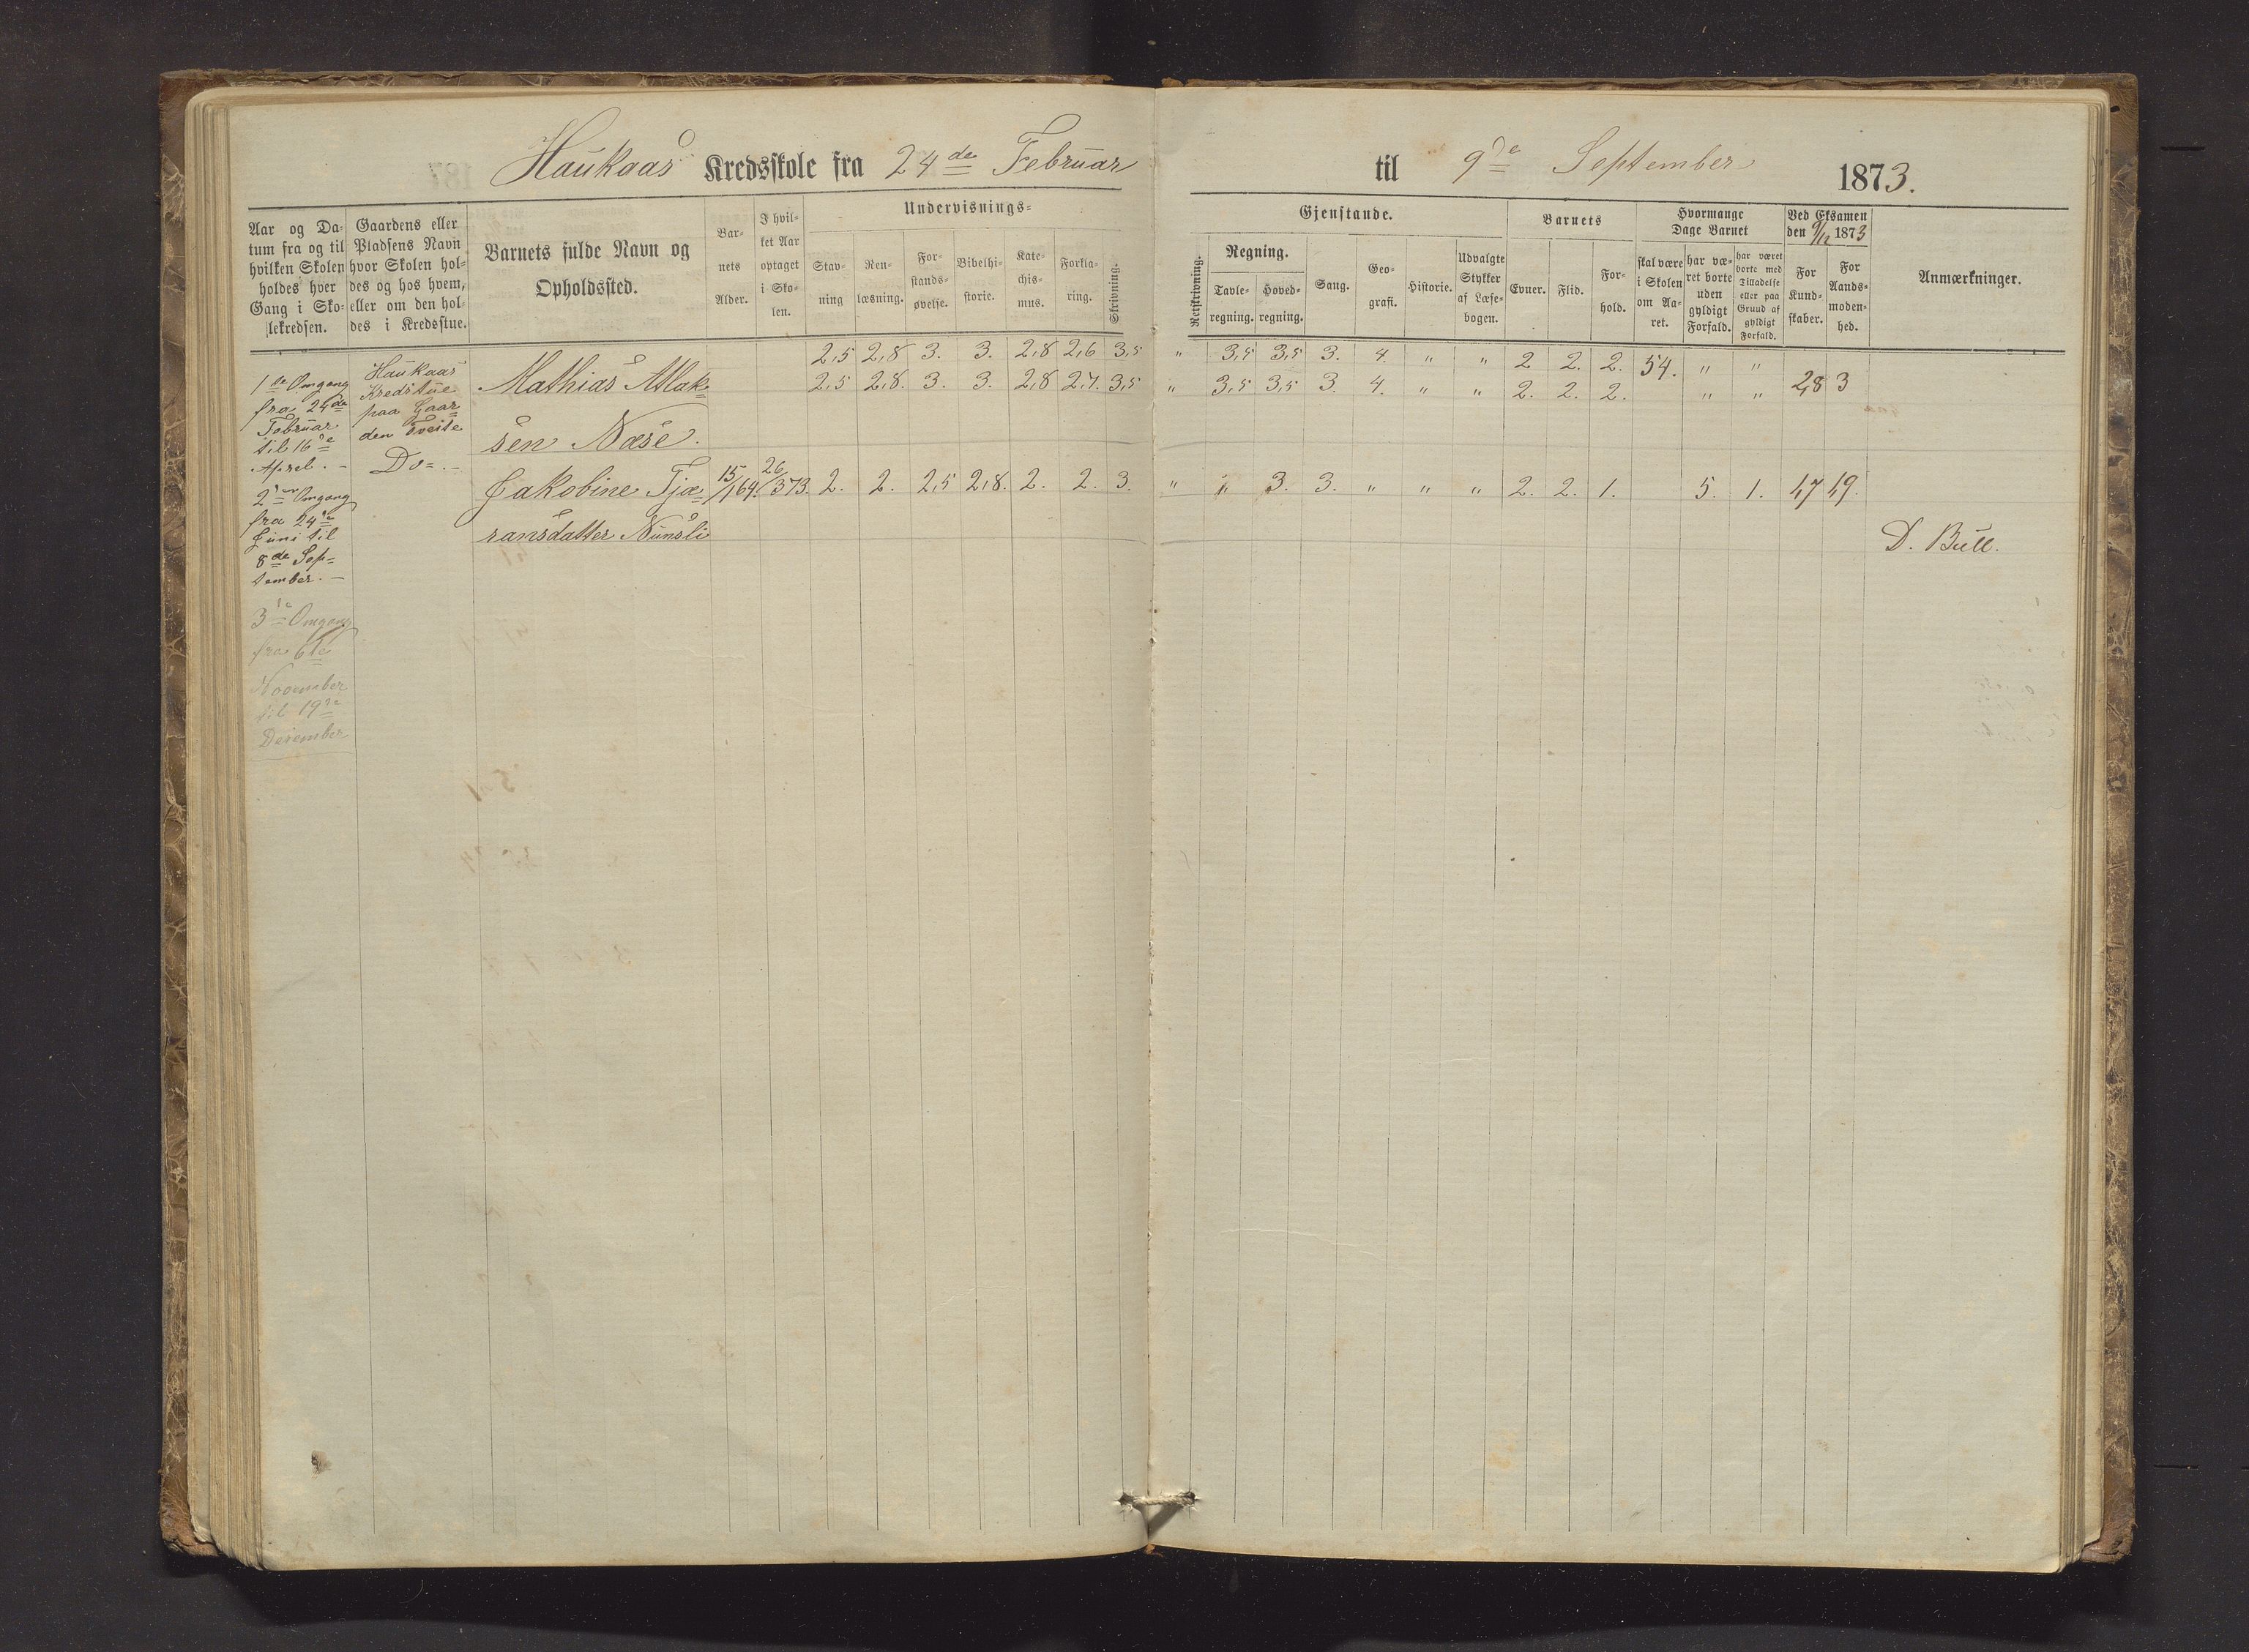 Haukaas Kredsskole fra 24de Februar til 9de September 1873.
Aar og Da-
tum fra og til
hvilken Skolen
holdes hver
Gang i Sko-
lekredsen.
Gaardens eller
Pladsens Navn
hvor Skolen hol-
des og hos hvem,
eller om den hol-
des i Kredsstue.
Barnets fulde Navn og
Opholdssted.
Bar-
nets
Alder.
I hvil-
ket Aar
optaget
i Sko-
len.
Undervisnings-
Stav-
ning
Ren-
læsning.
For-
stands-
øvelse.
Bibelhi-
storie.
Kate-
chis-
mus.
Forkla-
ring.
Skrivning.
Gjenstande.
Retskrivning.
Regning.
Tavle-
regning.
Hoved-
regning.
Sang.
Geo-
grafi.
Historie.
Udvalgte
Stykker
af Læse-
bogen.
Barnets
Evner.
Flid.
For-
hold.
Hvormange
Dage Barnet
skal være
i Skolen
om Aa-
ret.
har væ-
ret borte
uden
gyldigt
Forfald.
har været
borte med
Tilladelse
eller paa
Grund af
gyldigt
Forfald.
Ved Eksamen
den 9/12 1873
For
Kund-
skaber.
For
Aands-
moden-
hed.
Anmærkninger.
1ste Omgang
fra 24de
Februar
til 16de
April. -
2den Omgang
fra 24de
Juni til
8de Sep-
tember. -
3de Omgang
fra 6te
November
til 19de
Desember
Haukaas
Kredstue
paa Gaar-
den Tveite
Do -. -
2,5 2,8 3. 3. 2,8 2,6 3,5 " 3,5 3,5 3. 4. " " 2 2. 2. 54. " "
Mathias Mak- 2,5 2,8. 3. 3. 2,8 2,7. 3,5 " 3,5 3,5 3. 4. " " 2. 2. 2. " " 2,8 3
sen Næse.
Jakobine Tjæ- 15/1 64. 26/3 73. 2. 2. 2,5 2,8. 2. 2. 3. " " 3. 3. " " " 2. 2. 1. 5. 1. 1,7 1,9.
ransdatter Nunsli
D. Bull.